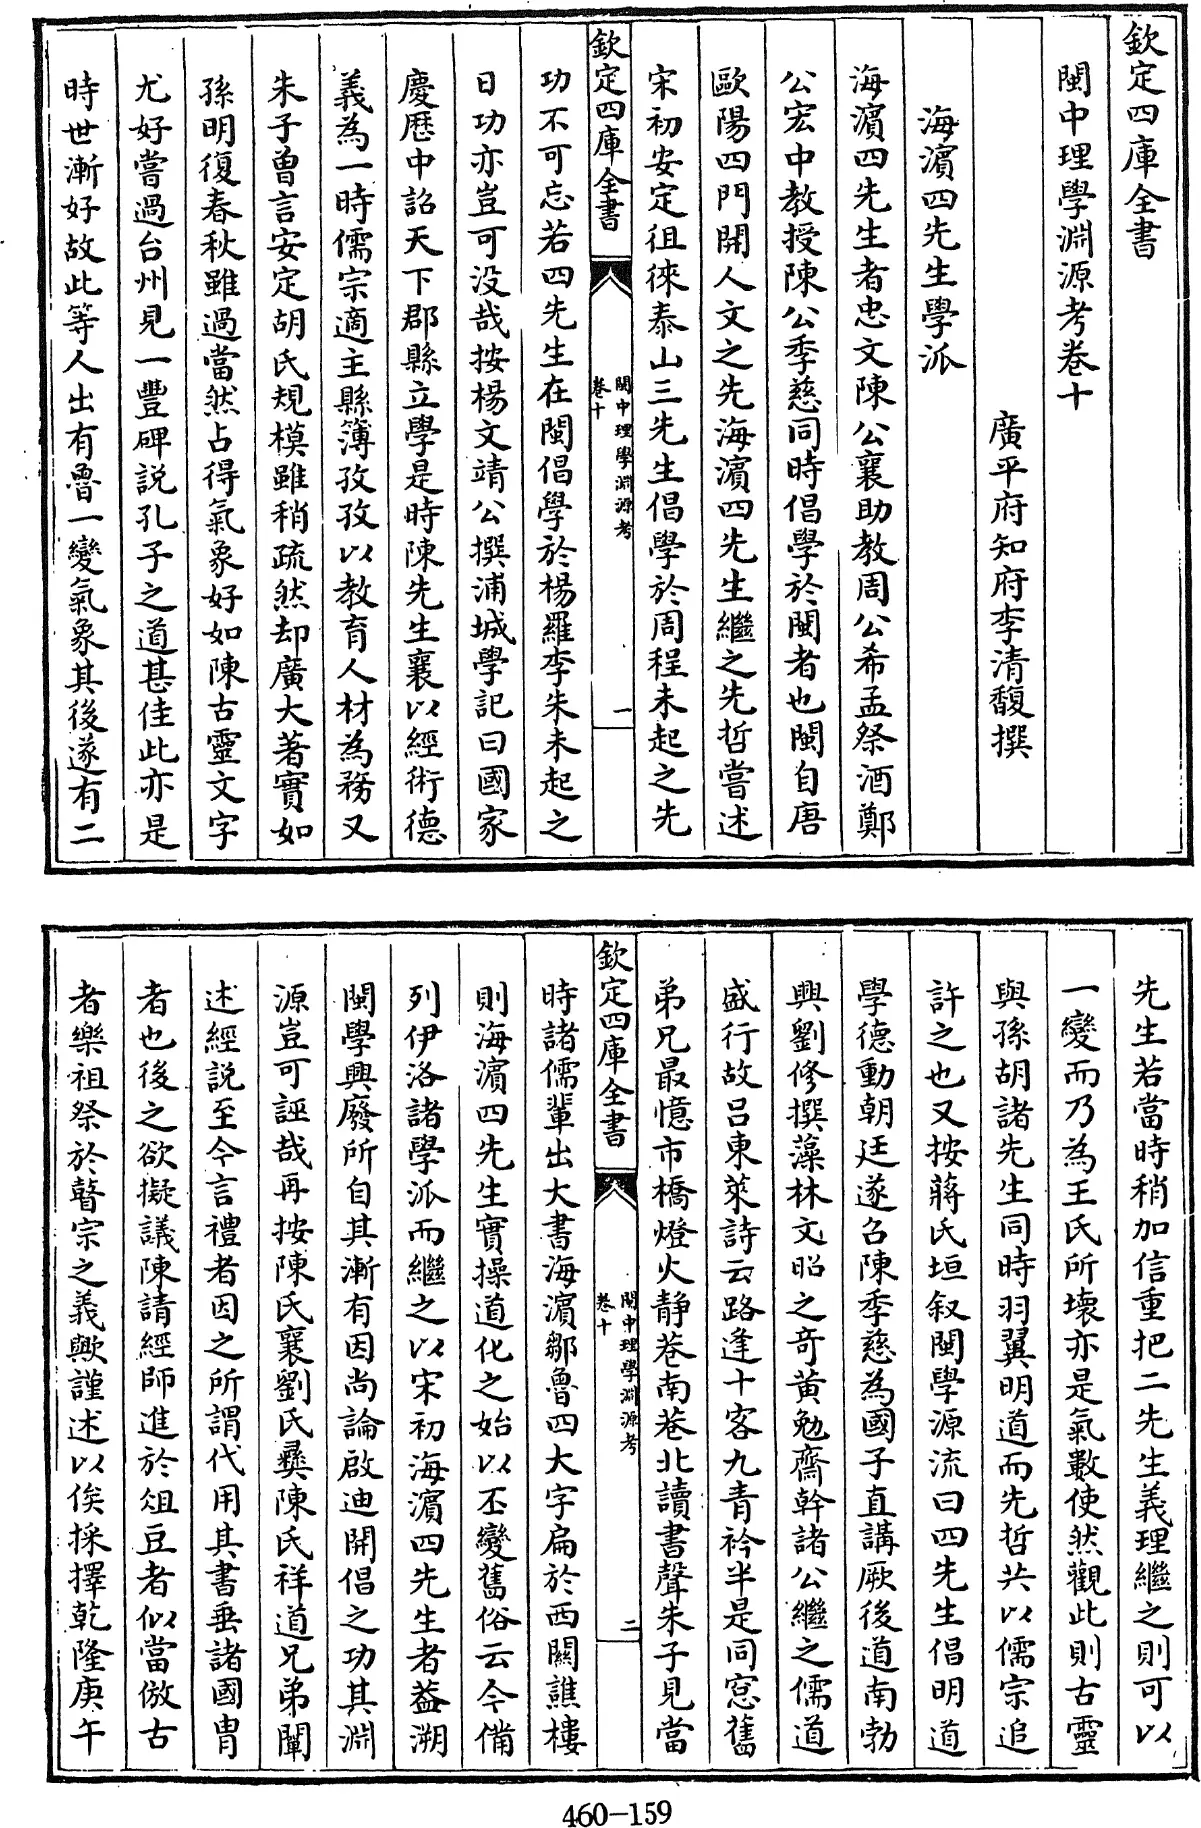 欽定四庫全書
閩中理學淵源考卷十
廣平府知府李清馥撰
海濱四先生學派
海濱四先生者忠文陳公襄助教周公希孟祭酒鄭
公宏中教授陳公季慈同時倡學於閩者也閩自唐
歐陽四門開人文之先海濱四先生繼之先哲嘗述
宋初安定徂徠泰山三先生倡學於周程未起之先
欽定四庫全書
閩中理學淵源考
卷十
一
功不可忘若四先生在閩倡學於楊羅李朱未起之
日功亦豈可没哉按楊文靖公撰浦城學記曰國家
慶歷中詔天下郡縣立學是時陳先生襄以經術德
義為一時儒宗適主縣簿孜孜以教育人材為務又
朱子曾言安定胡氏規模雖稍疏然却廣大著實如
孫明復春秋雖過當然占得氣象好如陳古靈文字
尤好嘗過台州見一豐碑説孔子之道甚佳此亦是
時世漸好故此等人出有魯一變氣象其後遂有二
先生若當時稍加信重把二先生義理繼之則可以
一變而乃為王氏所壞亦是氣數使然觀此則古靈
與孫胡諸先生同時羽翼明道而先哲共以儒宗追
許之也又按蔣氏垣叙閩學源流曰四先生倡明道
學德動朝廷遂召陳季慈為國子直講厥後道南勃
興劉修撰藻林文昭之奇黄勉齋幹諸公繼之儒道
盛行故吕東萊詩云路逢十客九青衿半是同窓舊
弟兄最憶市橋燈火静巷南巷北讀書聲朱子見當
欽定四庫全書
閩中理學淵源考
卷十
二
時諸儒輩出大書海濱鄒魯四大字扁於西關譙樓
則海濱四先生實操道化之始以丕變舊俗云今備
列伊洛諸學派而繼之以宋初海濱四先生者葢溯
閩學興廢所自其漸有因尚論啟迪開倡之功其淵
源豈可誣哉再按陳氏襄劉氏彝陳氏祥道兄弟闡
述經説至今言禮者因之所謂代用其書垂諸國胄
者也後之欲擬議陳請經師進於俎豆者似當倣古
者樂祖祭於瞽宗之義歟謹述以俟採擇乾隆庚午
460-159